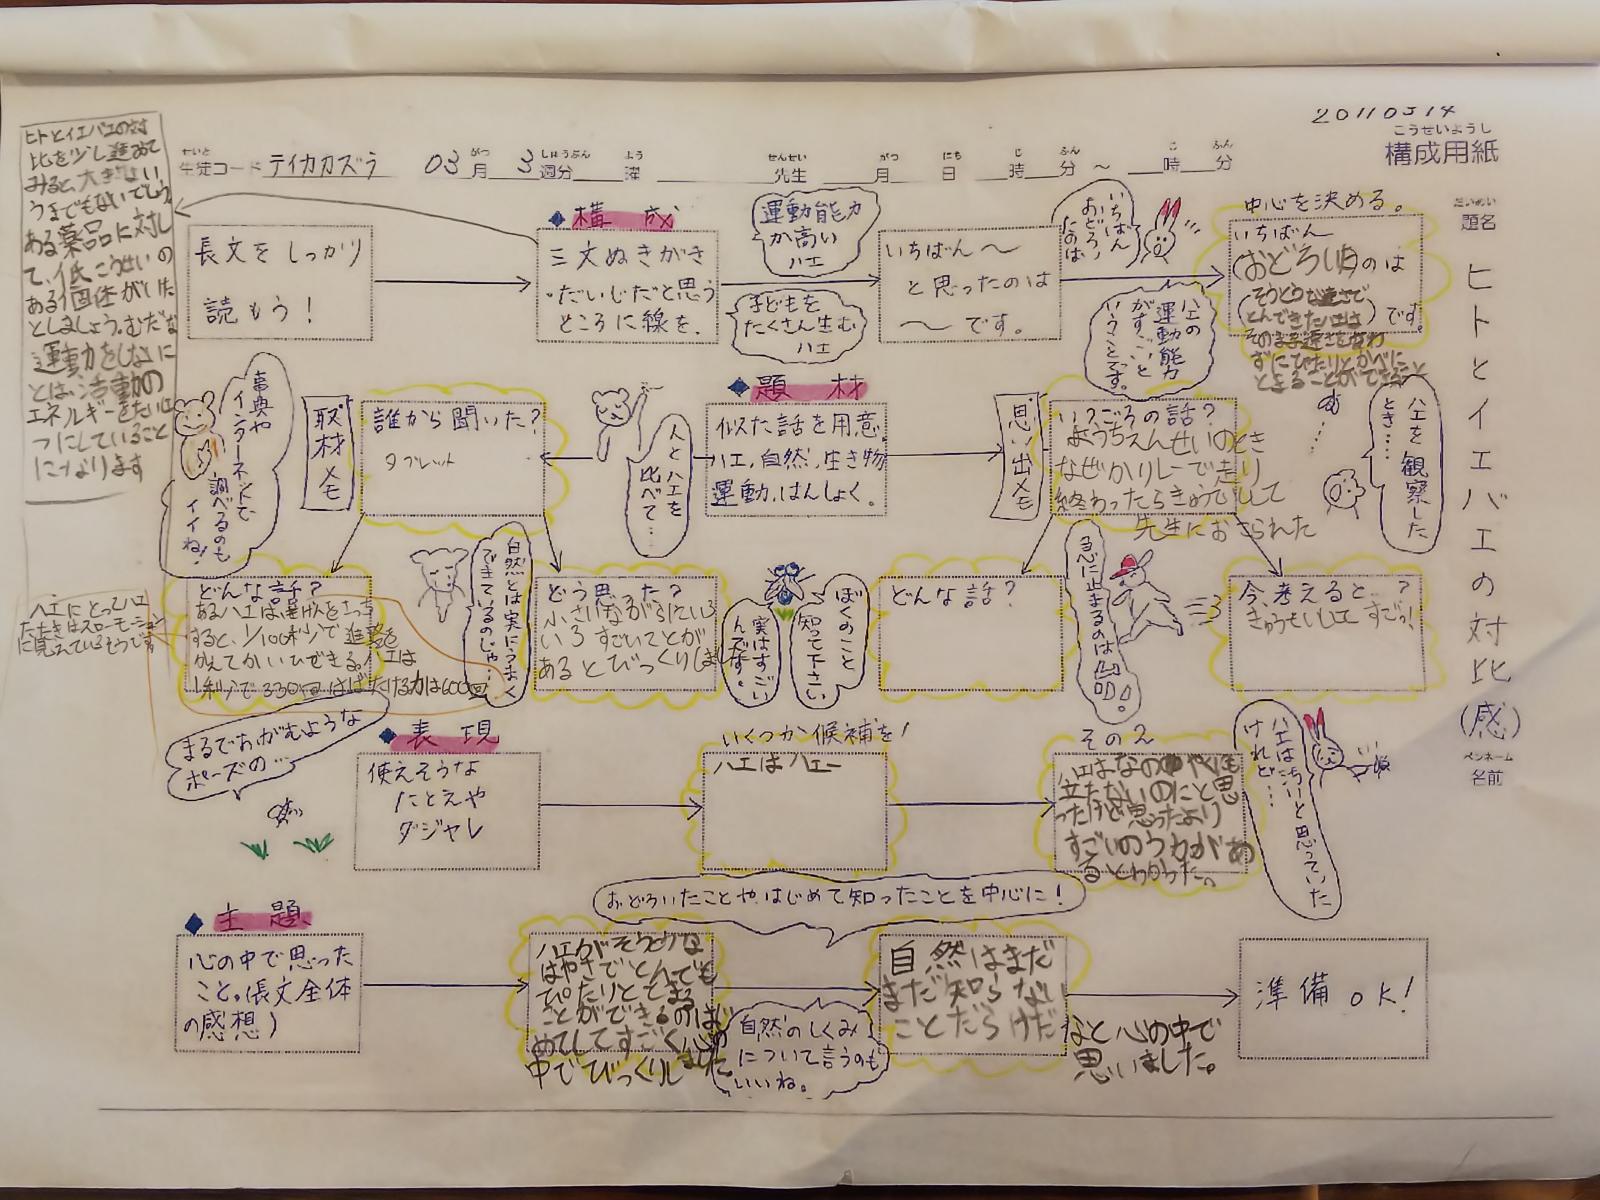 20110314
こうせいようし
構成用紙
せいと
生徒コード テイカカズラ 03月 3週分 曜 先生 月 日 時 分 ～ 時 分
がつ しゅうぶん よう せんせい がつ にち じ ふん じ ふん
だいめい
題名
ヒトとイエバエの対比(感)
ペンネーム
名前
ヒトとイエバエの対
比を少し進めて
みると、大きなよい
うまでもないでしょう
ある薬品に対し
て、低こうせいの
ある個体がいた
としましょう。むだな
運動をしないこ
とは、活動の
エネルギーを
つにしていること
になります
長文をしっかり
読もう！
◆構成
三文ぬきがき
・だいじだと思う
ところに線を、
運動能力
が高い
ハエ
子どもを
たくさん生む
ハエ
いちばん～
と思ったのは
～です。
いちばん
おどろい
たのは、
ハエの
運動能力
がすごいと
いうことです。
中心を決める。
いちばん
(おどろいたのは
そうとうな速さで
とんできたハエは
)です。
そのまま速さを変わ
ずにぴたりとかべに
とまることができること
ハエを観察した
とき…
事典や
インターネットで
調べるのも
イイね！
取材メモ
誰から聞いた？
タブレット
人とハエを
比べて…
◆題材
似た話を用意
ハエ，自然，生き物
運動，はんしょく。
思い出メモ
いつごろの話？
ようちえんせいのとき
なぜかリレーで走り
終わったらきゅうていしして
先生におこられた
ハエにとってハエ
たたきはスローモーション
に見えているそうです。
どんな話？
あるハエは
すると、1/100秒で進路を
かえてかいひできる。ハエは
1秒で330回はばたける力は600回
自然とは実にうまく
できているのじゃ…
どう思った？
小さいながらにいろ
いろすごいことが
あるとびっくりしまし
実はすごい
んです。
ぼくのこと
知って下さい
どんな話？
急に止まるのは
今、考えると…？
きゅうせいしってすごっ！
まるでおがむような
ポーズの…
◆表現
使えそうな
たとえや
ダジャレ
いくつか候補を！
ハエはハエー
その2
ハエはなんのやくにも
立たないのにと思
ったけど思ったより
すごいのうりょくがあ
るとわかった。
ハエは汚いと思っていた
けれど…
おどろいたことや、はじめて知ったことを中心に！
◆主題
心の中で思った
こと。(長文全体
の感想)
ハエがそうとうな
はやさでとんでも
ぴたりととまる
ことができるのはじ
めてしてすごく心の
中でびっくりしました
自然のしくみ
について言うのも
いいね。
自然はまだ
まだ知らない
ことだらけだ
なと心の中で
思いました。
準備OK！